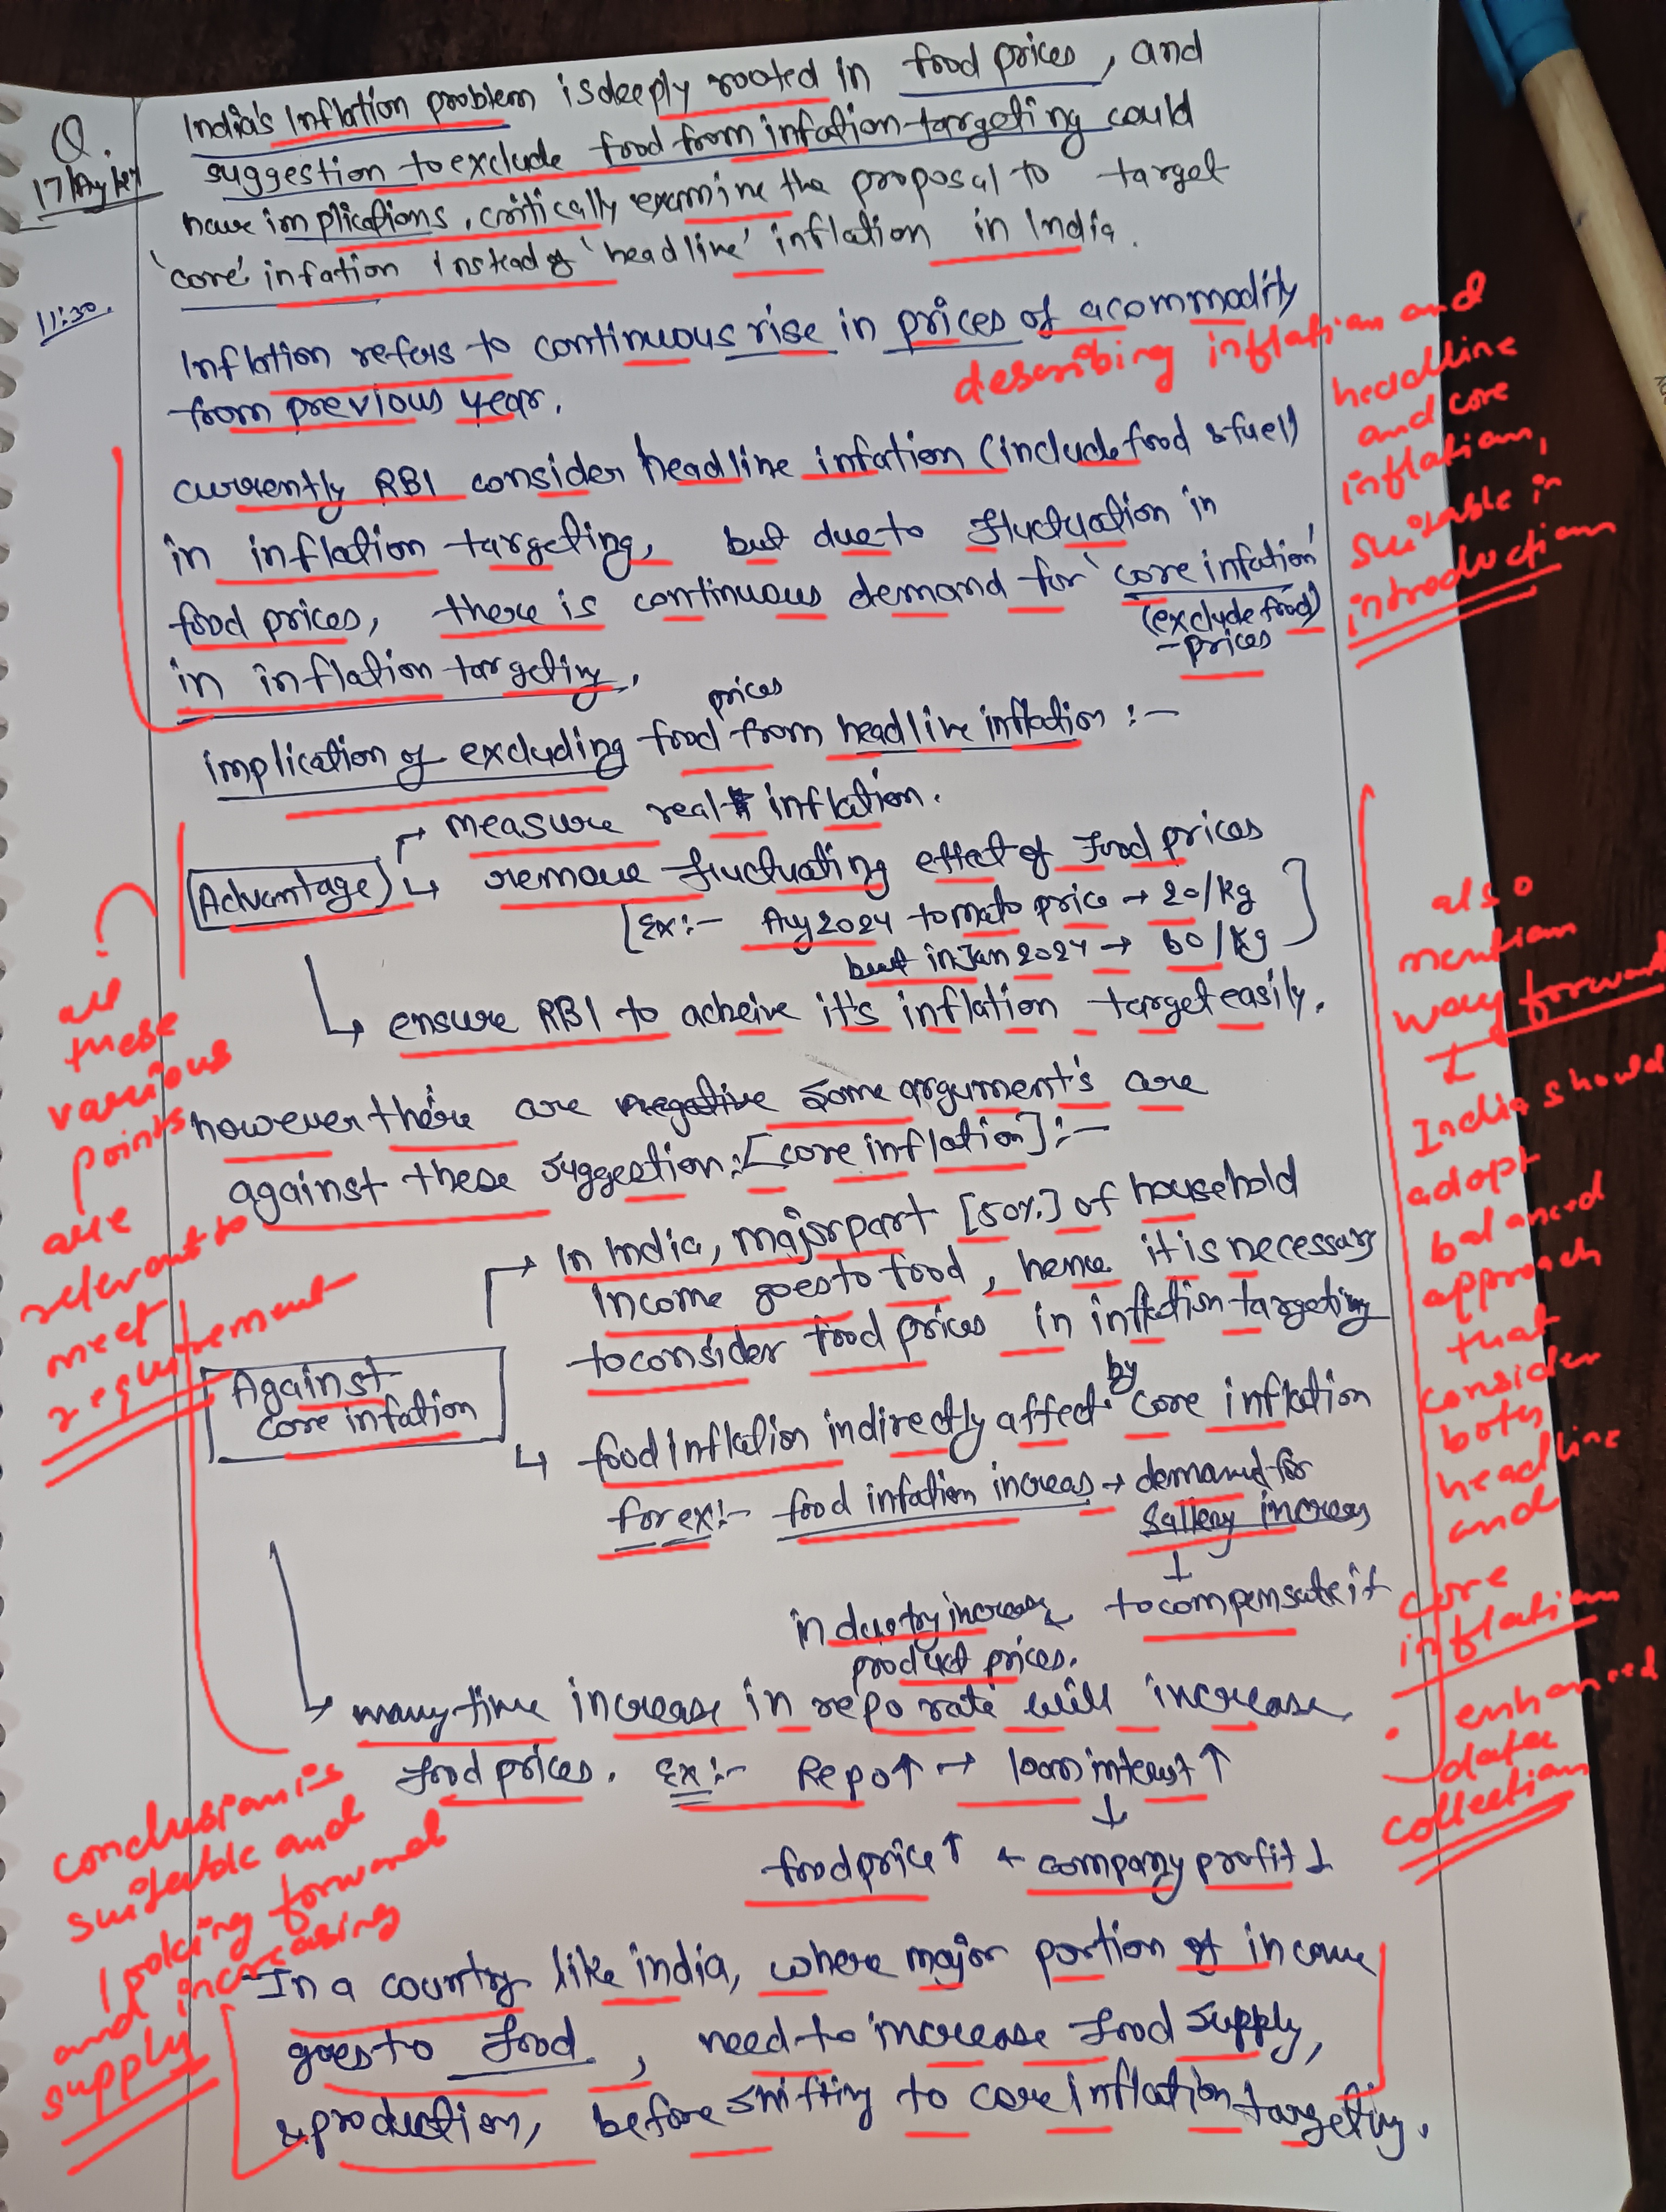 Q.
17 Aug
11:30.
India's Inflation problem is deeply rooted in food prices, and
suggestion to exclude food from infation-targeting could
have implications, critically examine the proposal to target
'core' infation instead of 'headline' inflation in India.
Inflation refers to continuous rise in prices of a commodity
from previous year.
describing inflation and
headline
and core
inflation,
suitable in
introduction
currently RBI consider headline infation (include food & fuel)
in inflation targeting, but due to fluctuation in
food prices, there is continuous demand for 'core infation'
(exclude food)
- prices
in inflation targeting.
implication of excluding food prices from headline inflation :-
Advantage
measure real inflation.
remove fluctuating effect of food prices
[Ex:- Aug 2024 tomato price → 20/kg
but in Jan 2024 → 60/kg]
ensure RBI to acheive it's inflation target easily.
all
these
various
points
are
relevant to
meet
requirement
however there are negative some argument's are
against these suggestion:[core inflation]:-
Against
core infation
In India, major part [50%] of household
income goes to food, hence it is necessary
to consider food prices in inflation targeting
food Inflation indirectly affect by core inflation
for ex:- food infation increas → demand for
sallery increas
↓
to compensate it
industry increase
product prices.
many time increase in repo rate will increase
food prices. Ex:- Repo↑ → loan interest ↑
↓
food price↑ ← company profit ↓
also
mention
way forward
↓
India should
adopt
balanced
approach
that
consider
both
headline
and
core
inflation
. enhanced
data
collection
conclusion is
suitable and
looking forward
and increasing
supply
In a country like india, where major portion of income
goes to food, need to increase food supply,
& production, before shifting to core inflation targeting.